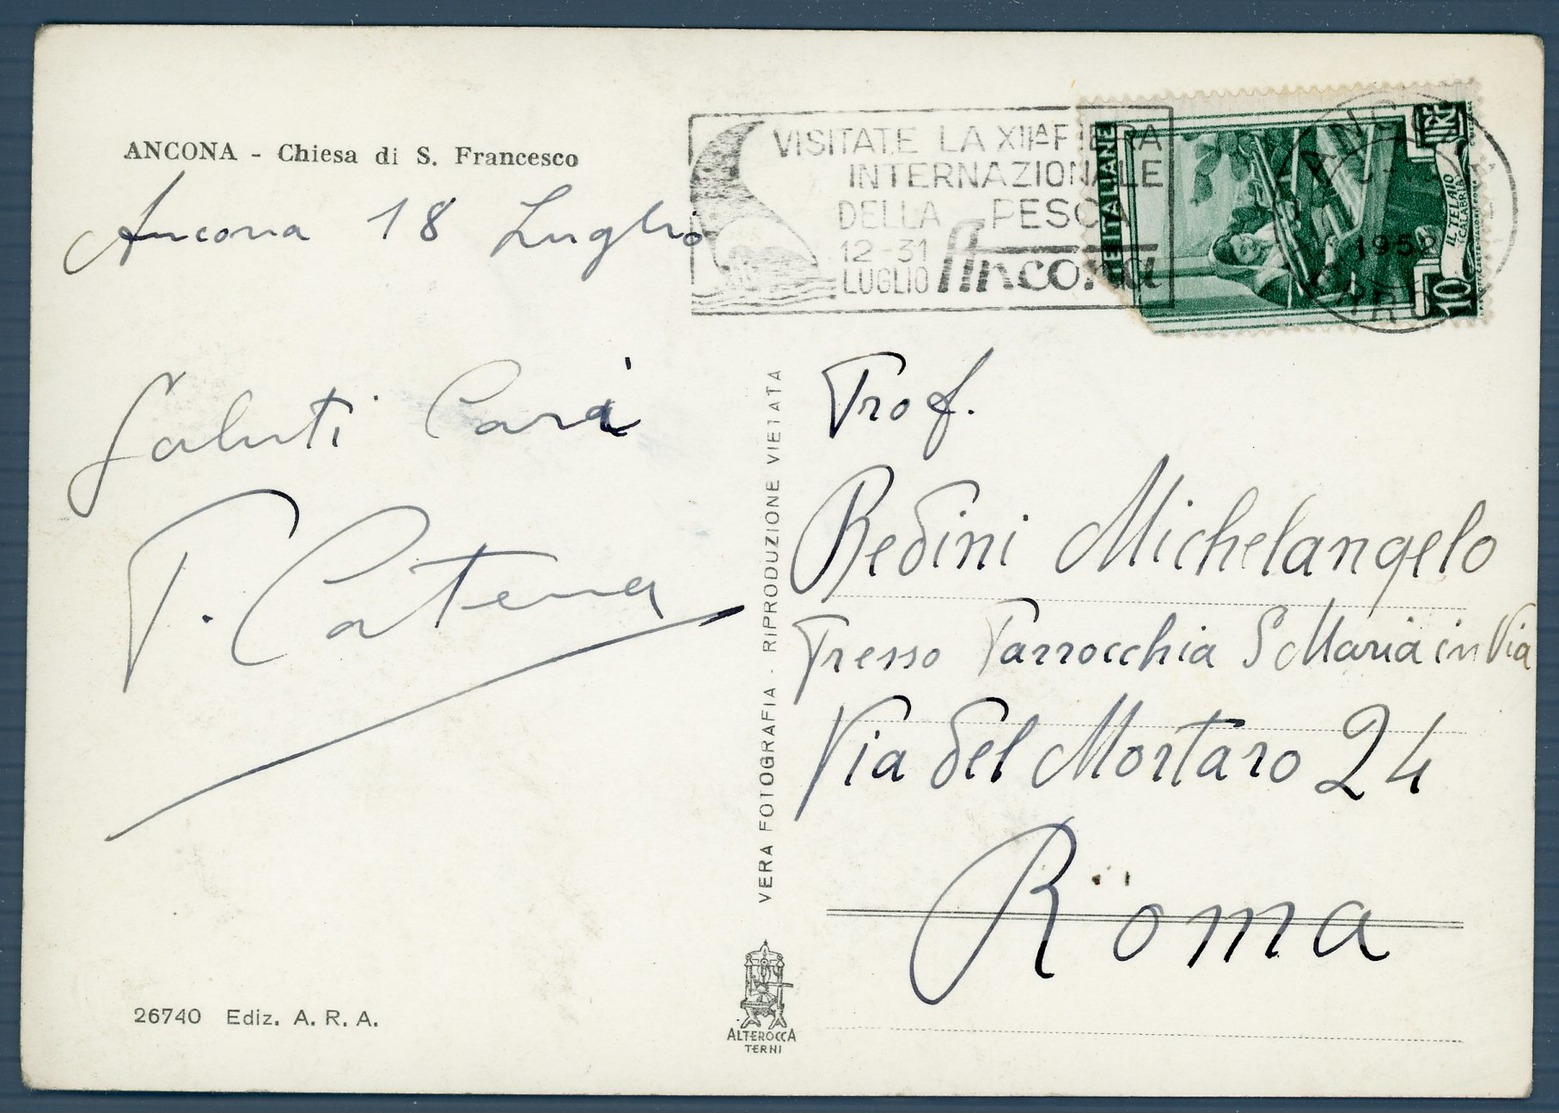 ANCONA - Chiesa di S. Francesco
Ancona 18 Luglio
Saluti Cari
P. Catena
26740 Ediz. A. R. A.
VERA FOTOGRAFIA - RIPRODUZIONE VIETATA
ALTEROCCA
TERNI
VISITATE LA XIIA FIERA
INTERNAZIONALE
DELLA PESCA
12-31
LUGLIO Ancona
1952
IL TELAIO
(CALABRIA)
10
LIRE
Prof.
Bedini Michelangelo
Presso Parrocchia S Maria in Via
Via del Mortaro 24
Roma